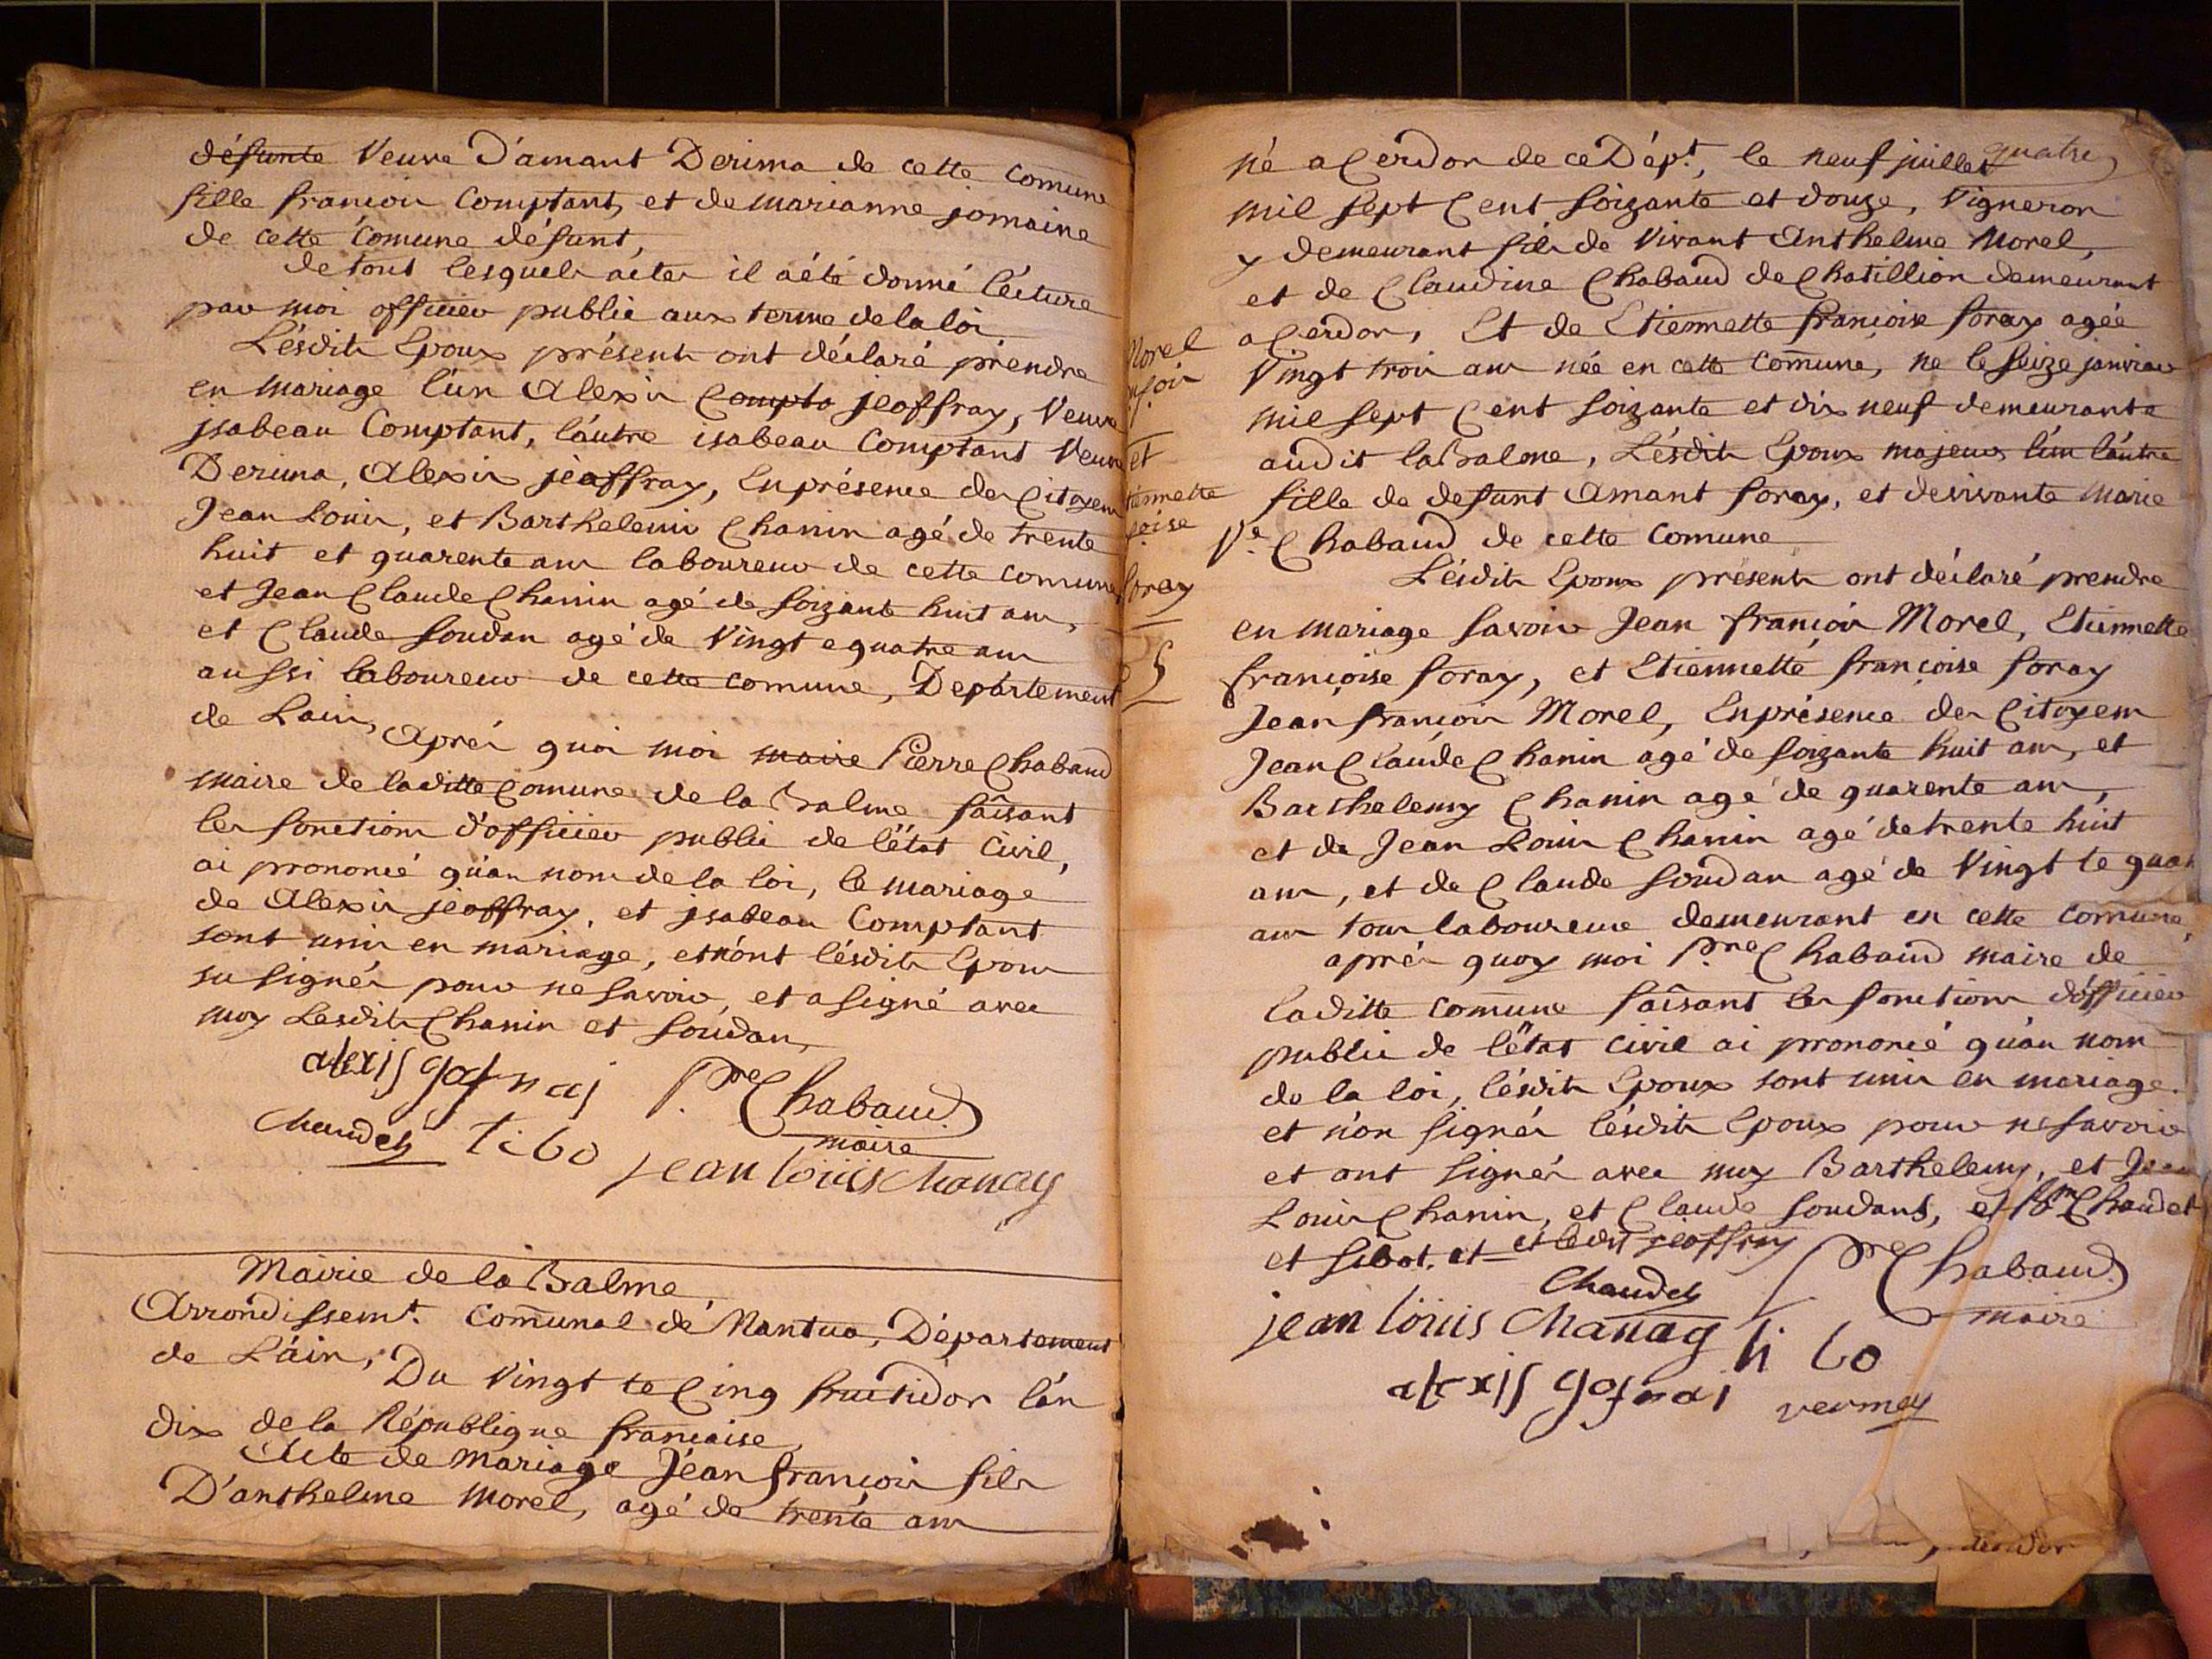 défunte Veuve D'amant Derima de cette Comune
fille françois Comptant, et de marianne jomaine
de cette Comune défunt,
de tout lesquels actes il a été donné lécture
par moi officier public aux terme de la loi
Lésdits Epoux présents ont déclaré prendre
en mariage l'un Alexis Compta jeoffray, Veuve
jsabeau Comptant, láutre isabeau Comptant Veuve
Derima, Alexis jeoffray, En présence des Citoyens
Jean Louis, et Barthelemi Chanin agé de trente
huit et quarente ans laboureur de cette comune
et Jean Claude Chanin agé de soizante huit ans,
et Claude soudan agé de Vingt e quatre ans
aussi laboureur de cette comune, Departement
de Lain,
Aprés quoi moi maire Pierre Chabaud
maire de laditte Comune de la Balme faîsant
les fonctions d'officier public de l'état Civil,
ai prononcé qu'au nom de la loi, le mariage
de Alexis jeoffray, et jsabeau Comptant
sont unis en mariage, et n'ont lésdits Epoux
su signés pour ne savoir, et a signé avec
moy Lesdits Chanin et soudan,
alexis gofnai Pre Chabaud
maire
Chaudet tibo jean louis chanay
Mairie de la Balme
Arrondissemt. Comunal de Nantua, Département
de L'áin, Du Vingt te Cinq fructidor l'án
dix de la République francaise,
Acte de Mariage Jéan françois fils
D'anthelme Morel, agé de trente ans
Morel
et
Soray
né a Cerdon de ce Dépt, le neuf juillet quatre
mil sept Cent soizante et douze, Vigneron
y demeurant fils de Vivant Anthelme Morel,
et de Claudine Chabaud de Chatillion demeurant
a Cerdon, Et de Etiennette françoise soray agée
Vingt trois ans née en cette comune, ne le seize janvier
mil sept Cent soizante et dix neuf demeurante
audit la Balme, Lésdits Epoux majeurs l'un l'áutre
fille de defunt Amant soray, et de vivante Marie
Ve Chabaud de cette Comune
Lésdits Epoux présents ont déclaré prendre
en mariage savoir Jean françois Morel, Etiennette
françoise soray, et Etiennette françoise soray
Jean françois Morel, En présence des Citoyens
Jean Claude Chanin agé de soizante huit ans, et
Barthelemy Chanin agé de quarente ans,
et de Jean Louis Chanin agé de trente huit
ans, et de Claude soudan agé de Vingt te quat
ans tous laboureur demeurant en cette comune,
aprés quoy moi Pre Chabaud maire de
laditte comune faîsant les fonctions d'officier
public de l'état civil ai prononcé qu'au nom
de la loi, lésdits Epoux sont unis en mariage.
et n'on signés lésdits Epoux pour ne savoir
et ont signés avec moy Barthelemy, et Jean
Louis Chanin, et Claude soudans, et Chaudet
et sibot. et et ledit jeoffray
Chaudet Pre Chabaud
maire
jean louis chanay ti bo
alexis gofnai vermey